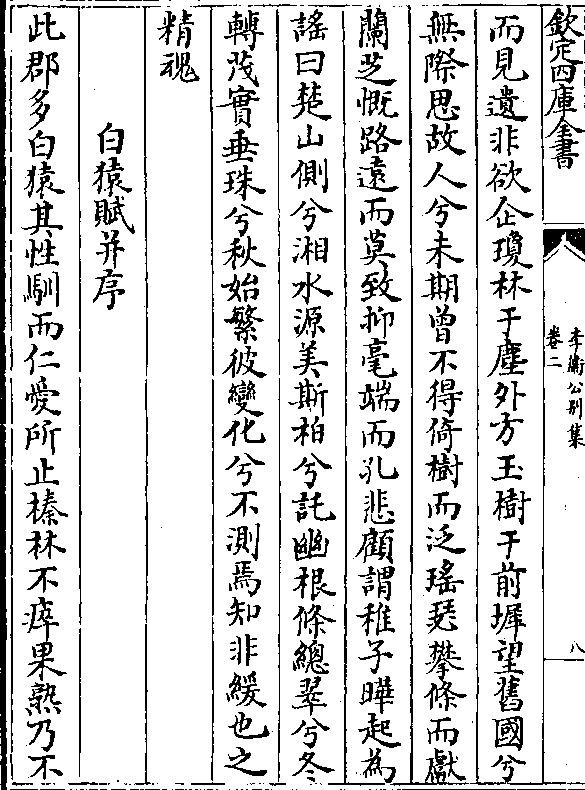 欽定四庫全書
李衛公別集
卷二
八
而見遺非欲企瓊林于塵外方玉樹于前墀望舊國兮
無際思故人兮未期曾不得倚樹而泛瑤瑟攀條而獻
蘭芝慨路遠而莫致抑毫端而孔悲顧謂稚子曄起為
謠曰楚山側兮湘水源美斯柏兮託幽根條總翠兮冬
轉茂實垂珠兮秋始繁彼變化兮不測焉知非緩也之
精魂
白猿賦并序
此郡多白猿其性馴而仁愛所止榛林不瘁果熟乃不